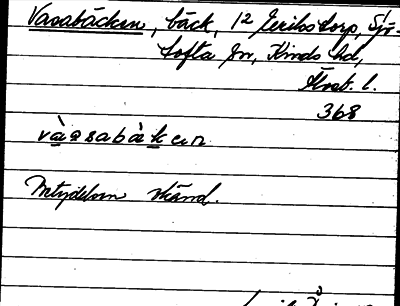 Vasabäcken, bäck, 12 Eriksstorp, Sju-
tofta sn, Kinds hd,
Älvsb. l.
368
vàsabàken
Betydelsen okänd.